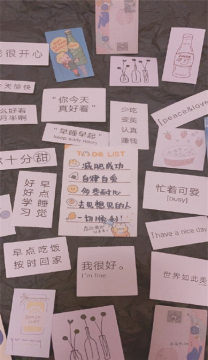 我很开心
[peace&love]
天愉快
"你今天
真好看"
少吃
变美
认真
赚钱
"早睡早起"
十分甜
TO DO LIST
减肥成功
自律自爱
多些耐心
去见想见的人
一切顺利!
好好学习
早点睡觉
忙着可爱
[busy]
Have a nice day
早点吃饭
按时回家
我很好。
I'm fine
世界如此美